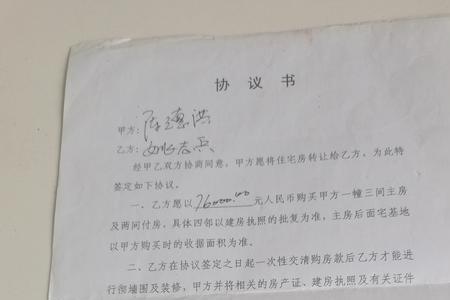 协议书
甲方：陈德洪
乙方：
经甲乙双方协商同意，甲方愿将住宅房转让给乙方、为此特
签定如下协议。
一、乙方愿以76000.00元人民币购买甲方一幢三间主房
及两间付房，具体四邻以建房执照的批复为准，主房后面宅基地
以甲方购买时的收据面积为准。
二、乙方在协议签定之日起一次性交清购房款后乙方才能进
行彻墙围及装修，甲方并将相关的房产证、建房执照及有关证件